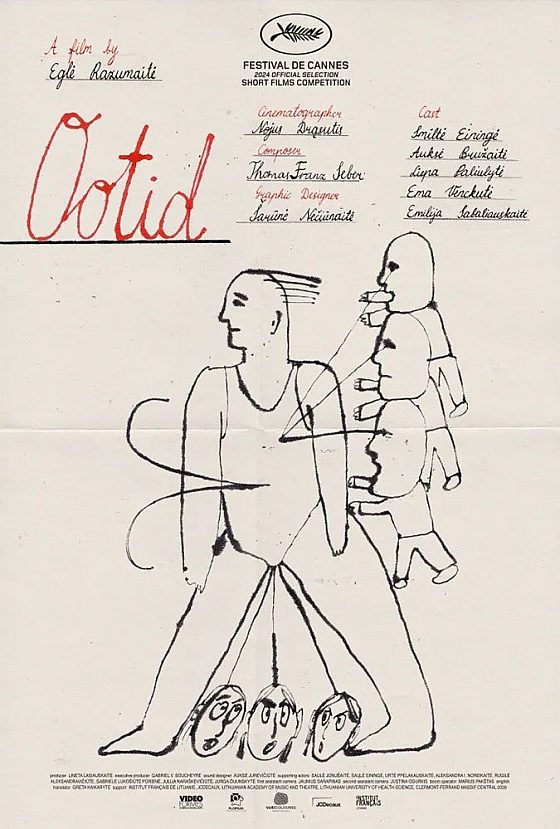 A film by
Eglė Razumaitė
FESTIVAL DE CANNES
2024 OFFICIAL SELECTION
SHORT FILMS COMPETITION
Ootid
Cinematographer
Nojus Drąsutis
Composer
Thomas Franz Seber
Graphic Designer
Šarūnė Nečiūnaitė
Cast
Smiltė Eiringė
Auksė Bružaitė
Liepa Paliulytė
Ema Venckutė
Emilija Sabaliauskaitė
producer LINETA LASIAUSKAITĖ executive producer GABRIEL V. SOUCHEYRE sound designer AUKSĖ JUREVIČIŪTĖ supporting actors SAULĖ JONUŠAITĖ, SAULĖ EIRINGĖ, URTĖ ALEKSANDRA I. NOREIKAITĖ, RUGILĖ
ALEKSANDRAVIČIŪTĖ, GABRIELĖ LUKOŠIŪTĖ first assistant camera JAUNIUS SARAPINAS second assistant camera JUSTINA OSURKIS boom operator MARIUS PAKŠTAS english
translator GRETA support INSTITUT FRANÇAIS DE LITUANIE, JCDECAUX, LITHUANIAN ACADEMY OF MUSIC AND THEATRE, LITHUANIAN UNIVERSITY OF HEALTH SCIENCE, CLERMONT-FERRAND MASSIF CENTRAL
VIDEO
FORMES
VIDEOFORMES
JCDecaux
INSTITUT
FRANÇAIS